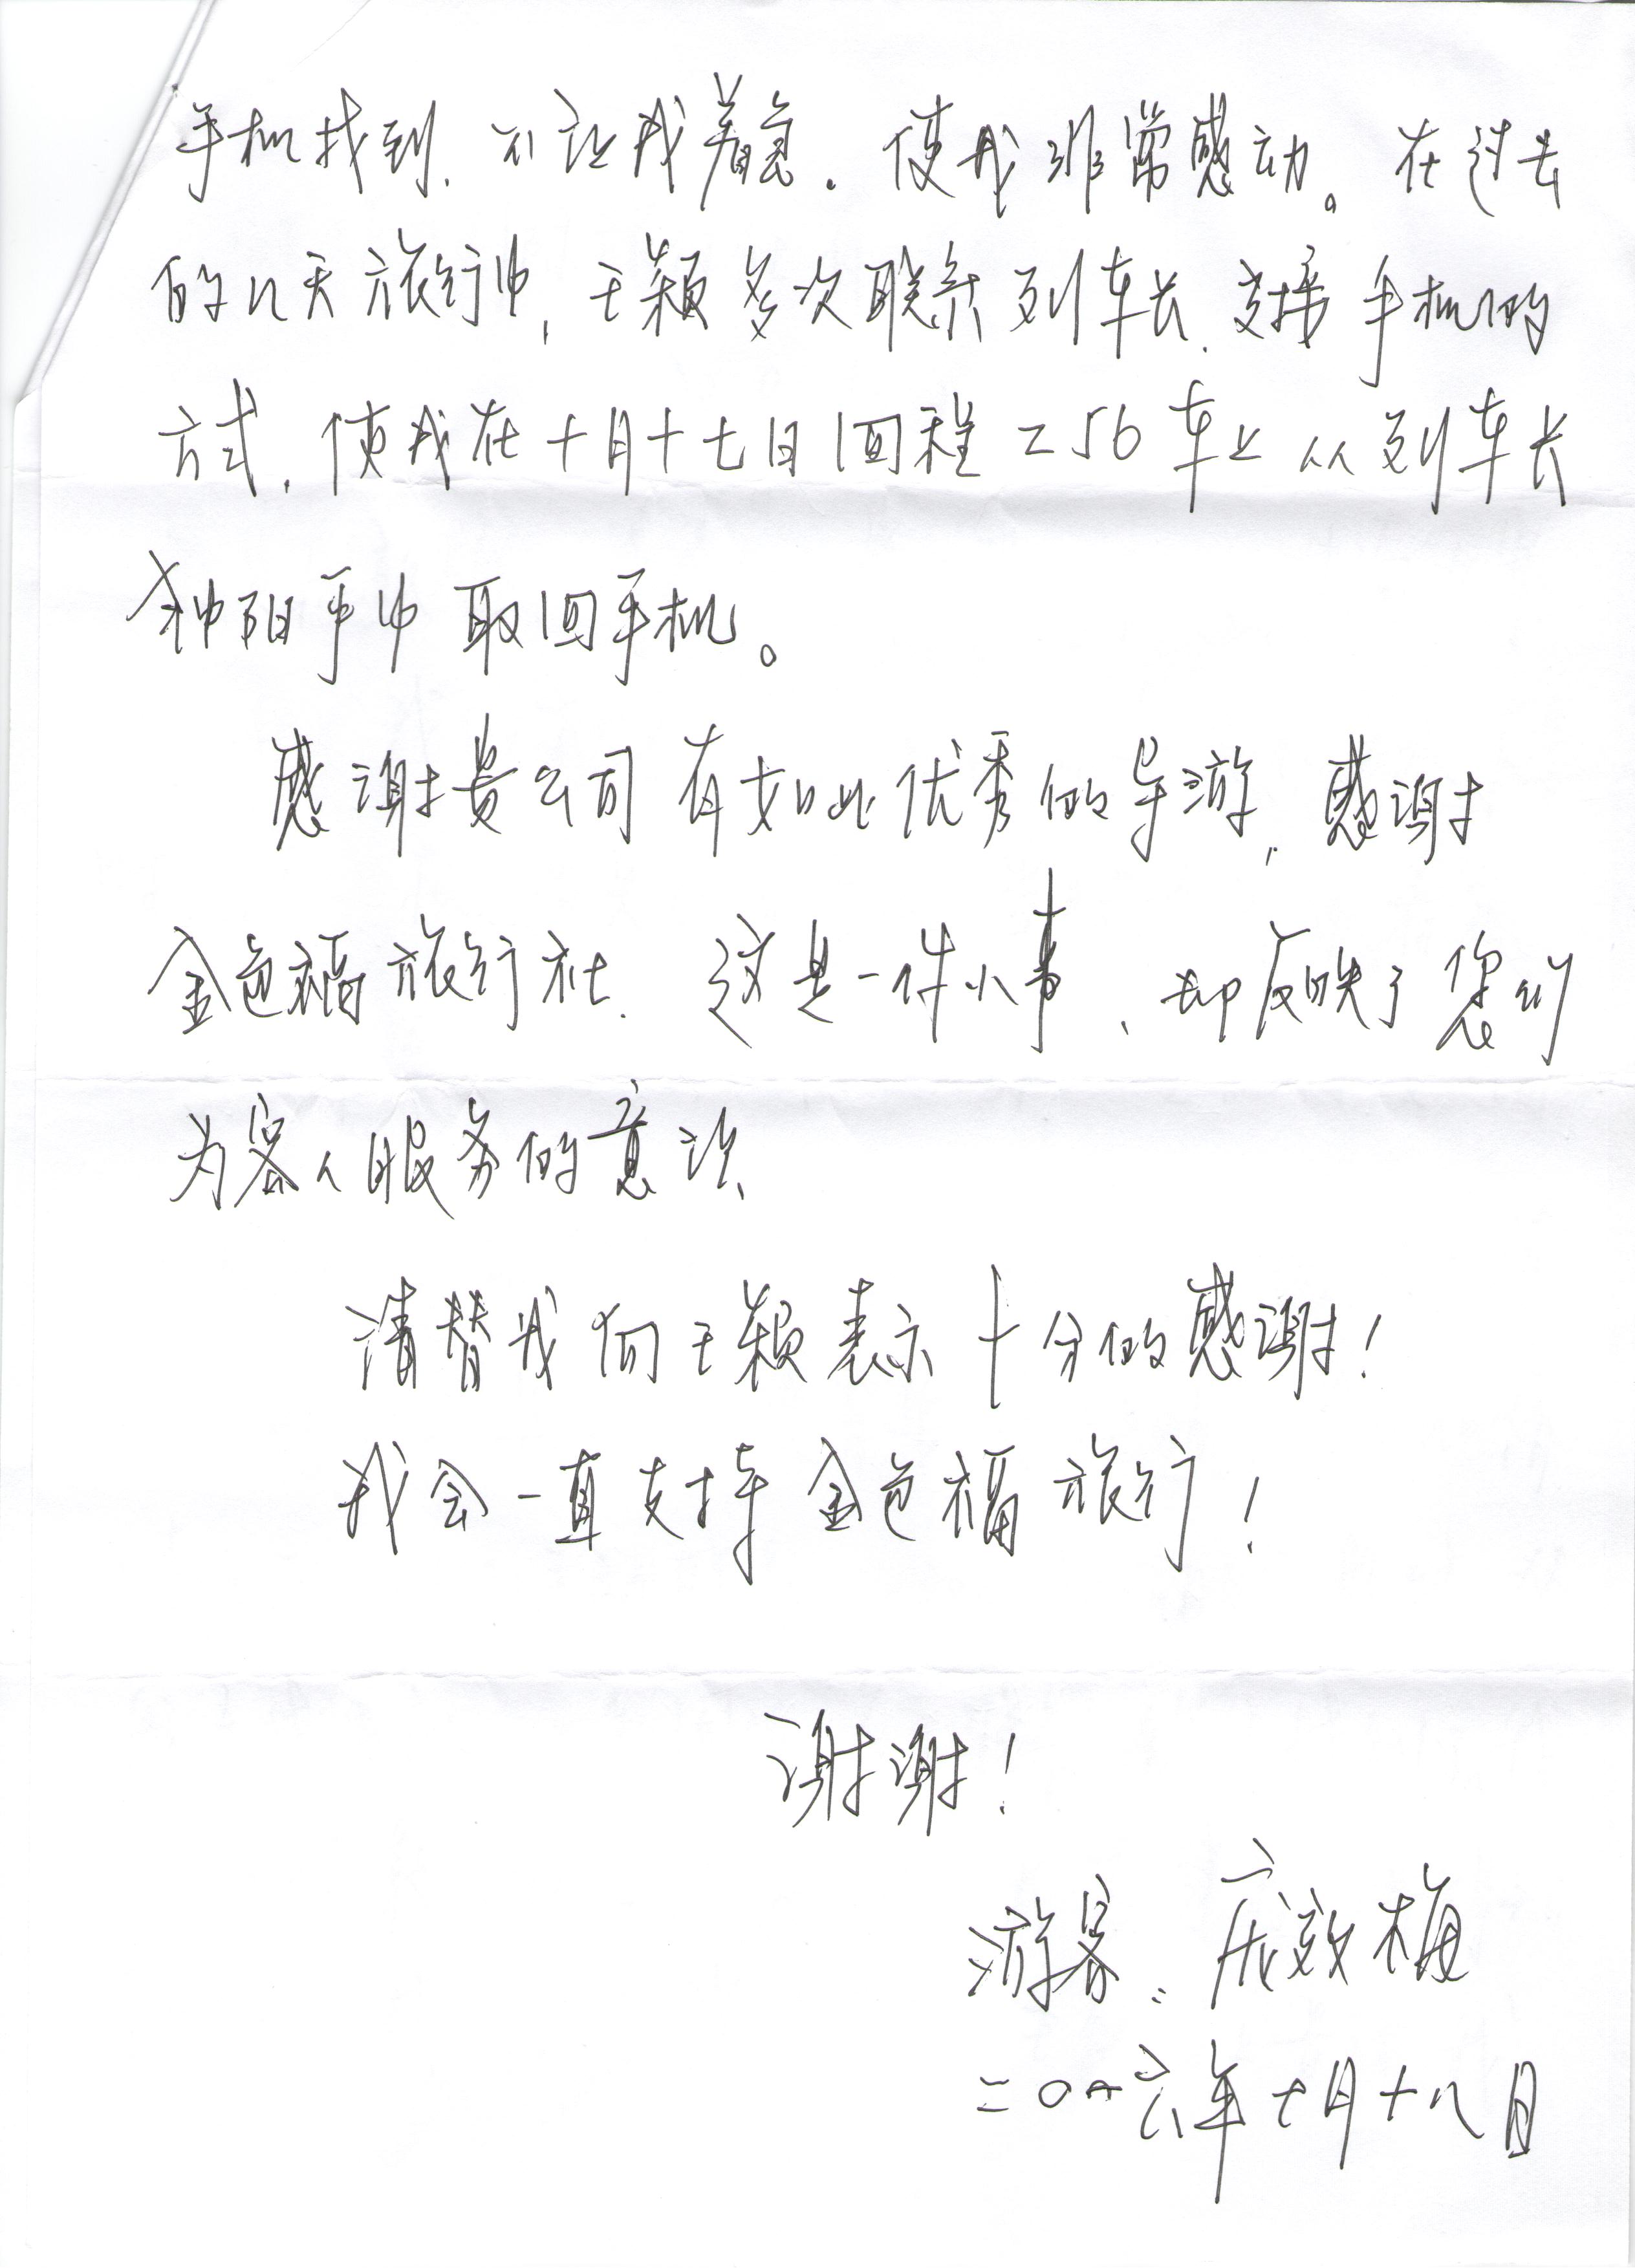 手机找到、不让我着急。使我非常感动。在过去
的几天旅行中,王颖多次联系列车长、交接手机的
方式,使我在十月十七日回程Z56车上从列车长
钟阳手中取回手机。
感谢贵公司有如此优秀的导游,感谢
金色福旅行社、这是一件小事、却反映了您们
为客人服务的意识、
请替我向王颖表示十分的感谢!
我会一直支持金色福旅行!
谢谢!
游客:效梅
二〇一六年十月十八日